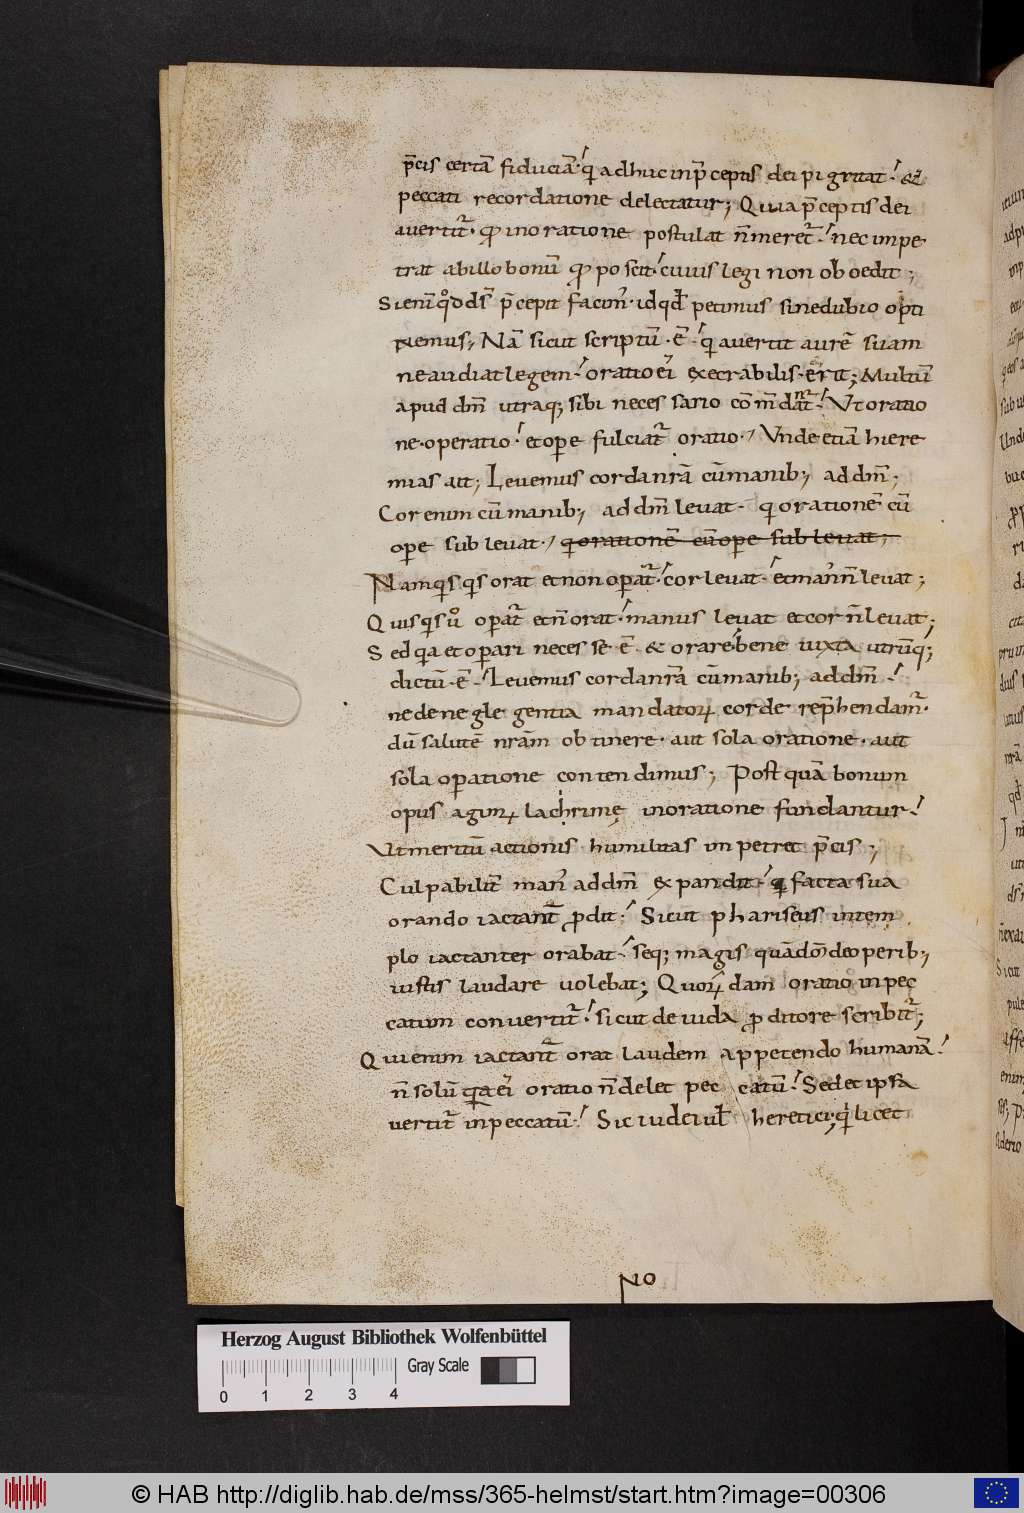 p̄cis certā fiduciā· q̇ adhuc inp̄ceptis dei pigritat· &
peccati recordatione delectatur; Quia p̄ceptis dei
auertit᷑· qđ inoratione postulat n̄ meret᷑· nec impe
trat abillo bonū qđ poscit· cuius legi non oboedit;
Si enī qđ ds̄ p̄cepit facim᷒· id qđ petimus sinedubio opti
nemus; Nā sicut scriptū· ē· q̇ auertit aurē suam
ne audiat legem· oratio ei᷒ execrabilis· erit; Multū
apud dm̄ utraq; sibi necessario cōm̄dant᷑· Ut oratio
ne· operatio· et ope fulciat᷑ oratio· Unde etiā hiere
mias ait; Leuemus corda nr̄a cū manib; ad dm̄;
Cor enim cū manib; ad dm̄ leuat· q orationē cū
ope subleuat· q orationē cū ope subleuat;
Nam q̇sq̇s orat et non opat᷑· cor leuat· et man᷒ n̄ leuat;
Quisq̇s ů opat᷑ et n̄ orat· manus leuat et cor n̄ leuat;
Sed q̇a et opari necesse ē· & orare bene iuxta utrūq;
dictū· ē· Leuemus corda nr̄a cū manib; ad dm̄·
ne de neglegentia mandatoꝝ corde rep̄hendam᷒·
dū salutē nr̄am obtinere· aut sola oratione· aut
sola opatione contendimus; Postquā bonum
opus agim᷒ lachrimę inoratione fundantur·
Ut meritū actionis humilitas impetret p̄cis;
Culpabilit̄ man᷒ ad dm̄ expandit· q facta sua
orando iactant̄ ꝓdit· Sicut phariseus intem
plo iactanter orabat· seq; magis quā dō deoperib;
iustis laudare uolebat; Quorūdam oratio inpec
catum conuertit᷑· sicut de iuda ꝓditore scribit᷑;
Qui enim iactant̄ orat laudem appetendo humanā·
n̄ solū q̇a ei᷒ oratio n̄ delet peccatū· Sed et ipsa
uertit᷑ inpeccatū· Sic iudei ul̄ heretici; q̇ licet
NO
Herzog August Bibliothek Wolfenbüttel
Gray Scale
0 1 2 3 4
© HAB http://diglib.hab.de/mss/365-helmst/start.htm?image=00306